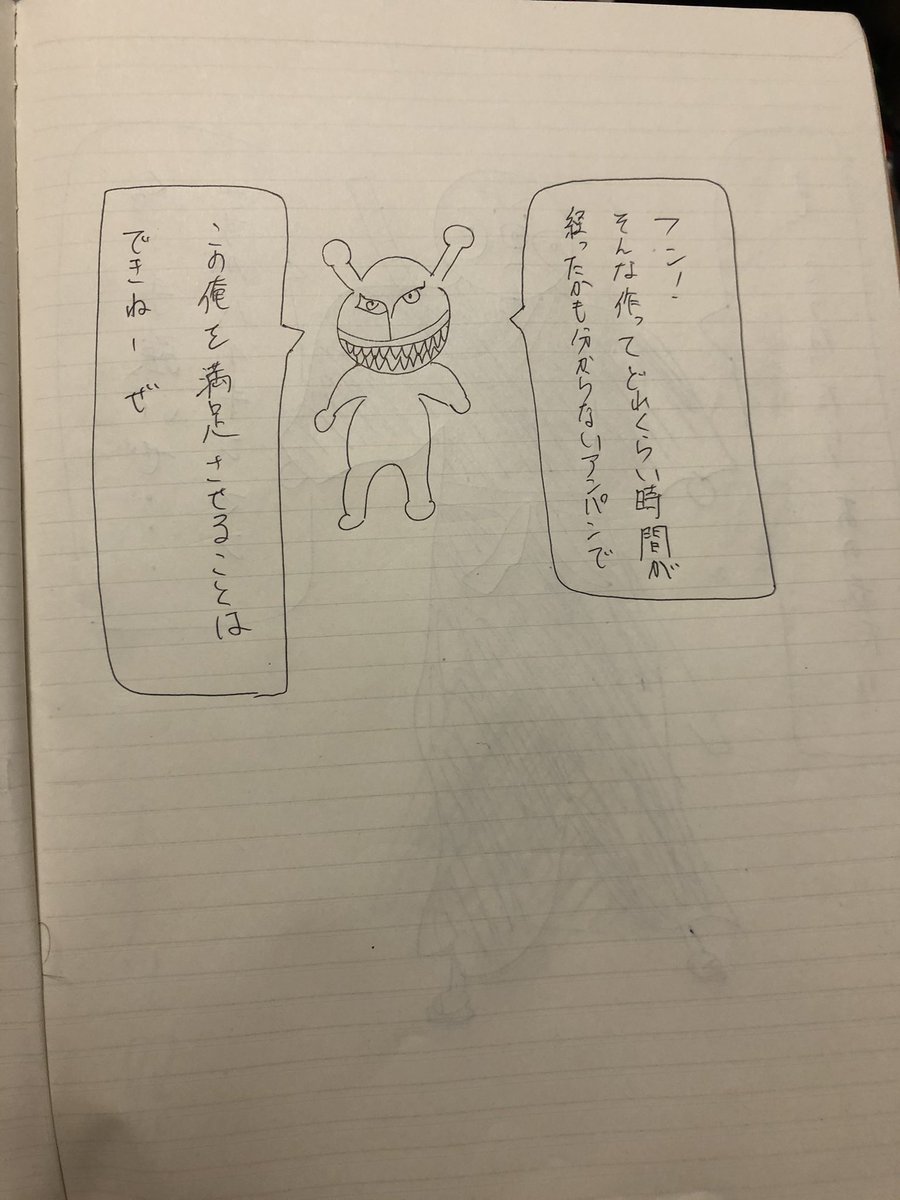 フン!
そんな作ってどれくらい時間が
経ったかも分からないアンパンで
この俺を満足させることは
できねーぜ